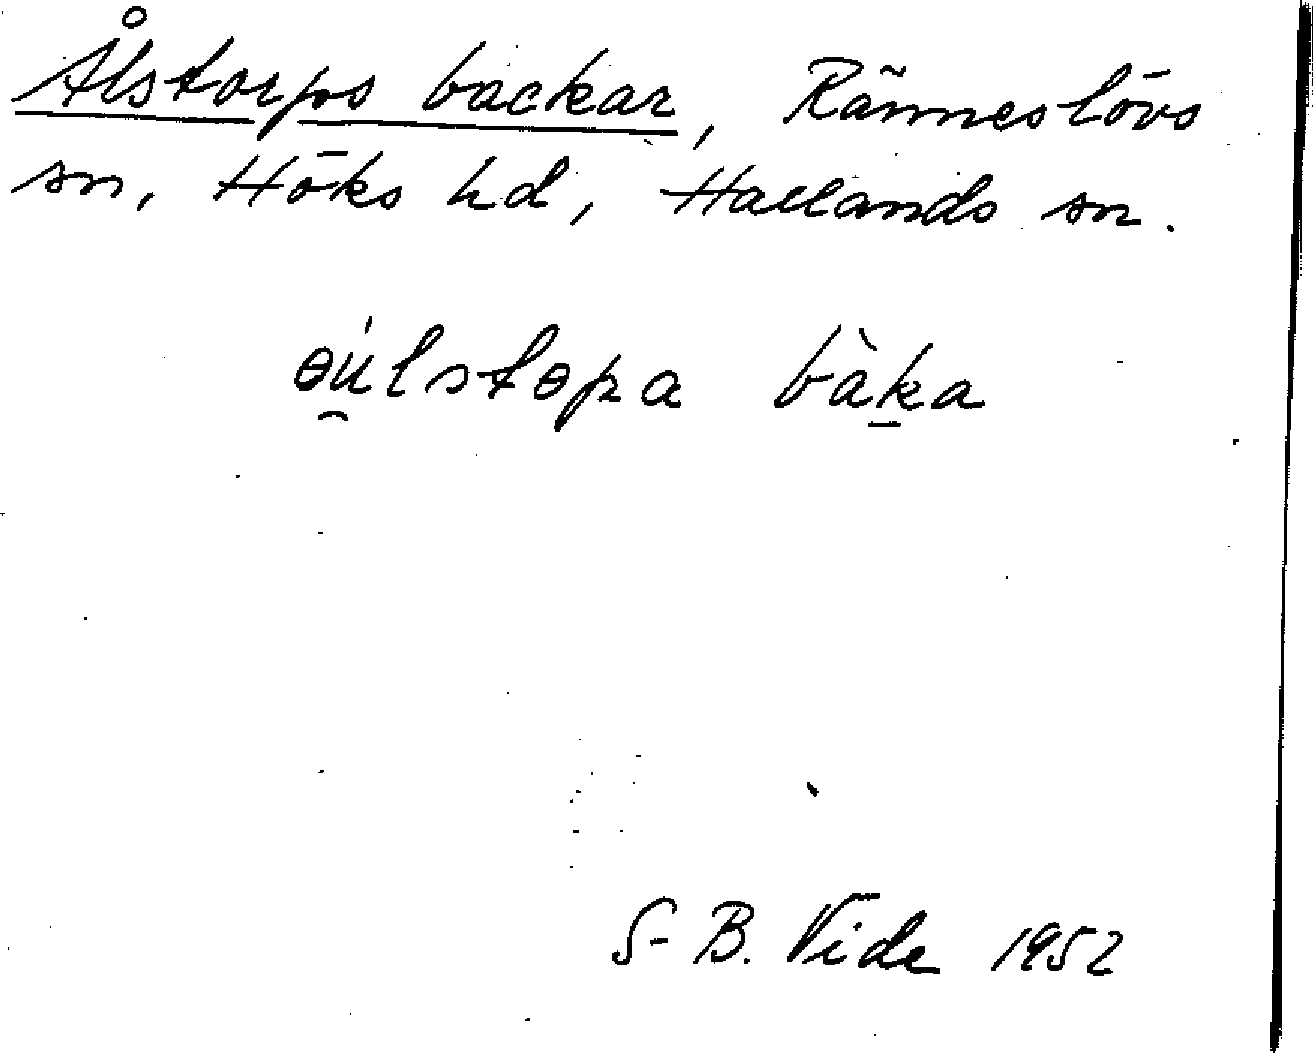 Ålstorps backar, Ränneslövs
sn, Höks hd, Hallands sn.
ɵú̯lstɵpa bàk̠a
S-B. Vide 1952